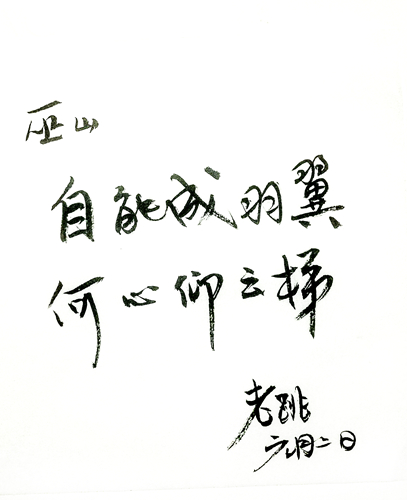 巫山
自能成羽翼
何必仰云梯
老跳
六月二日